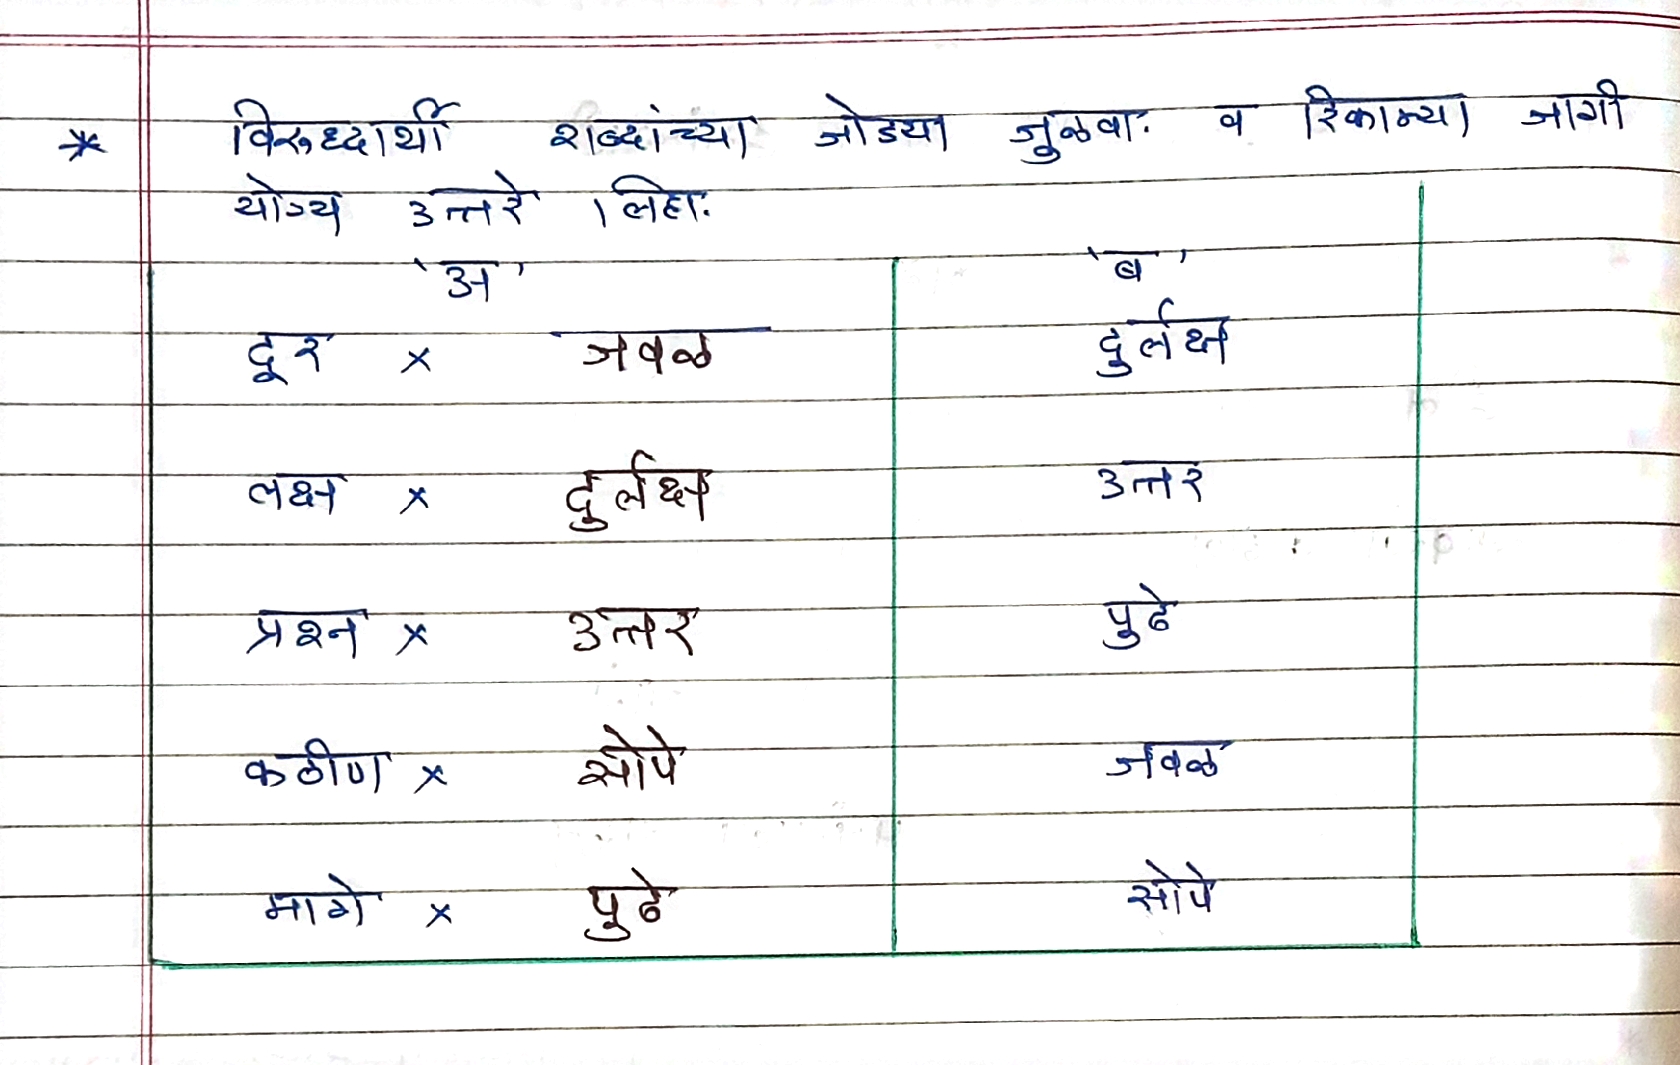 * विरुध्दार्थी शब्दांच्या जोडया जुळवा. व रिकाम्या जागी
योग्य उत्तरे लिहा.
'अ' 'ब'
दूर × जवळ दुर्लक्ष
लक्ष × दुर्लक्ष उत्तर
प्रश्न × उत्तर पुढे
कठीण × सोपे जवळ
मागे × पुढे सोपे